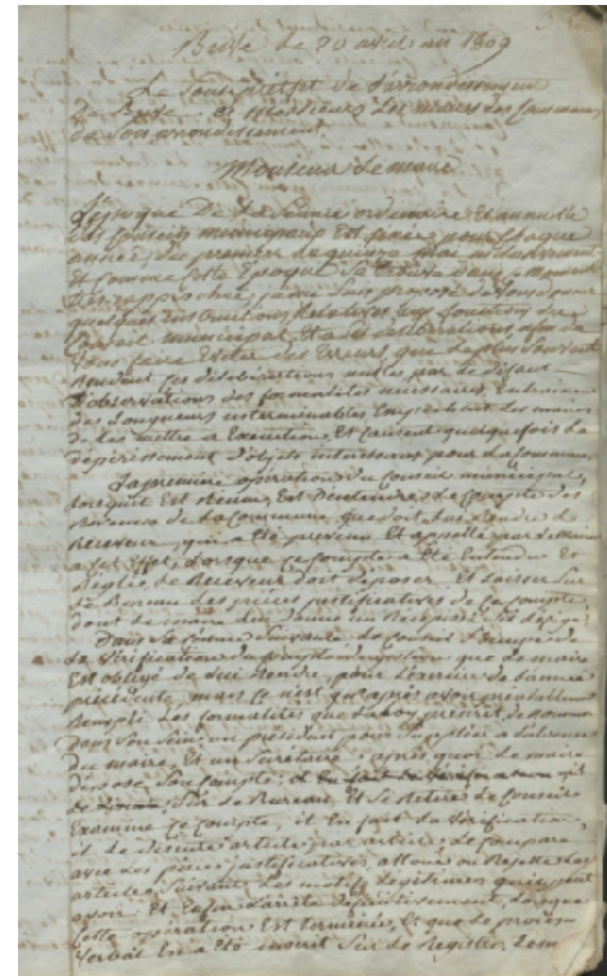 le 20 avril an 1809
Le Sous préfet de l'arrondissement
de a Messieurs Les maires des Communes
de Son arrondissement
Monsieur Le maire
L'époque De La Séance ordinaire Et annuelle
des Conseils municipaux Est fixée pour Chaque
année du premier au quinze mai
Et Comme Cette Epoque Se trouve Dans Ce moment
très rapprochée, je me Suis proposé de Vous donner
quelques instructions Relatives aux fonctions du
Conseil municipal, Et a Ses deliberations, afin de
Vous faire Eviter des Erreurs, que Le plus Souvent
Rendent Ces délibérations nulles par Le défaut
d'observations des formalités nécessaires, Entrainent
des Longueurs interminables Empechent Les maires
de Les mettre a Execution, Et Causent quelquefois Le
dépérissement d'objets intéressans pour La Commune
La premiere opération du Conseil municipal,
Lorsqu'il Est réuni, Est D'entendre Le Compte des
Revenus de La Commune que doit Lui Rendre Le
Receveur, qui a Eté prevenu Et appellé par Le Maire
a Cet Effet, Lorsque Ce Compte a Eté Entendu Et
Réglé, Le Receveur doit déposer Et Laisser Sur
Le Bureau des pièces justificatives de Ce Compte
dont Le maire Lui Donne un
Dans La Séance Suivante Le Conseil S'occupe de
La Vérification du Compte que Le maire
Est obligé de Lui Rendre, pour L'exercice de L'année
précédente, mais Ce n'est qu'après avoir préalablement
Rempli Les formalités que La Loy prescrit, de nommer
Dans Son Sein un président pour Suppléer a
Du maire, Et un Secrétaire, après quoi Le maire
dépose Son Compte
Sur Le Bureau, Et Se Retire Le Conseil
Examine Ce Compte, il En fait La Vérification,
il Le discute article par article, Le Compare
avec Les pièces justificatives, alloue ou Rejette Les
articles Suivant Les motifs Légitimes qu'il peut
avoir Et Enfin L'arrête définitivement, Lorsque
Cette opération Est terminée, Et que Le procès-
Verbal En a Eté inscrit Sur Le Registre,